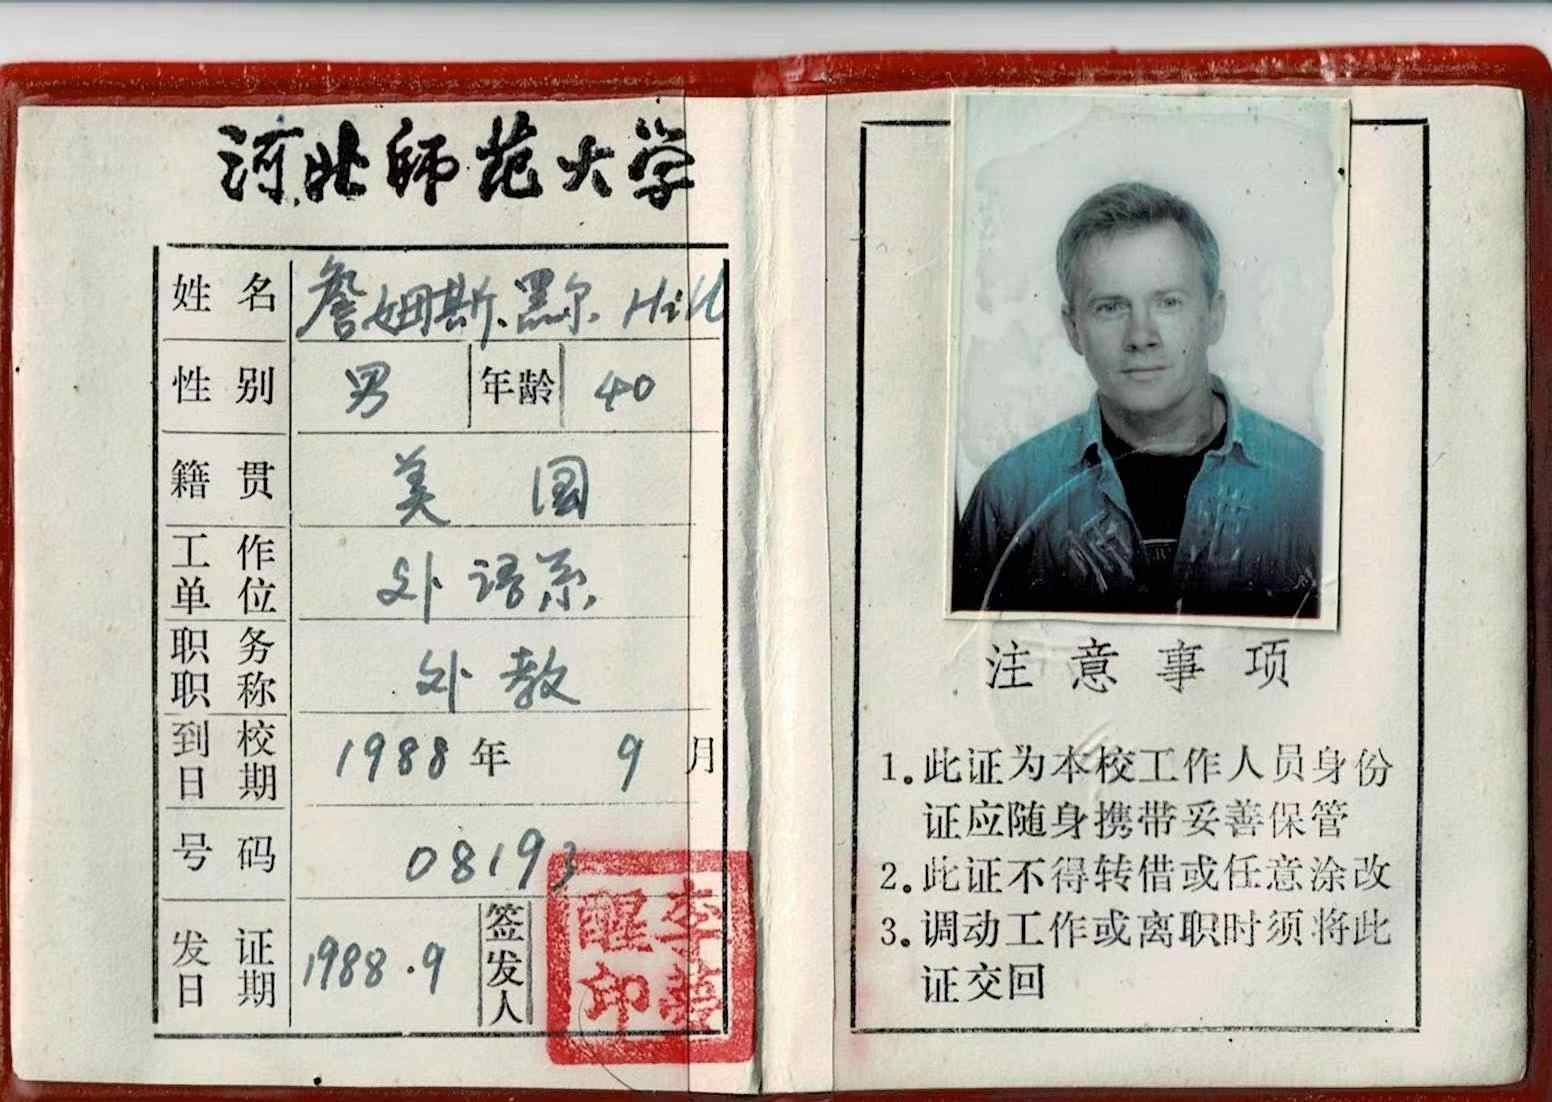 河北师范大学
姓名 詹姆斯.黑尔. Hill
性别 男 年龄 40
籍贯 美国
工作单位 外语系
职务职称 外教
到校日期 1988年 9月
号码 08193
发证日期 1988.9 签发人
注意事项
1。此证为本校工作人员身份
证应随身携带妥善保管
2。此证不得转借或任意涂改
3。调动工作或离职时须将此
证交回